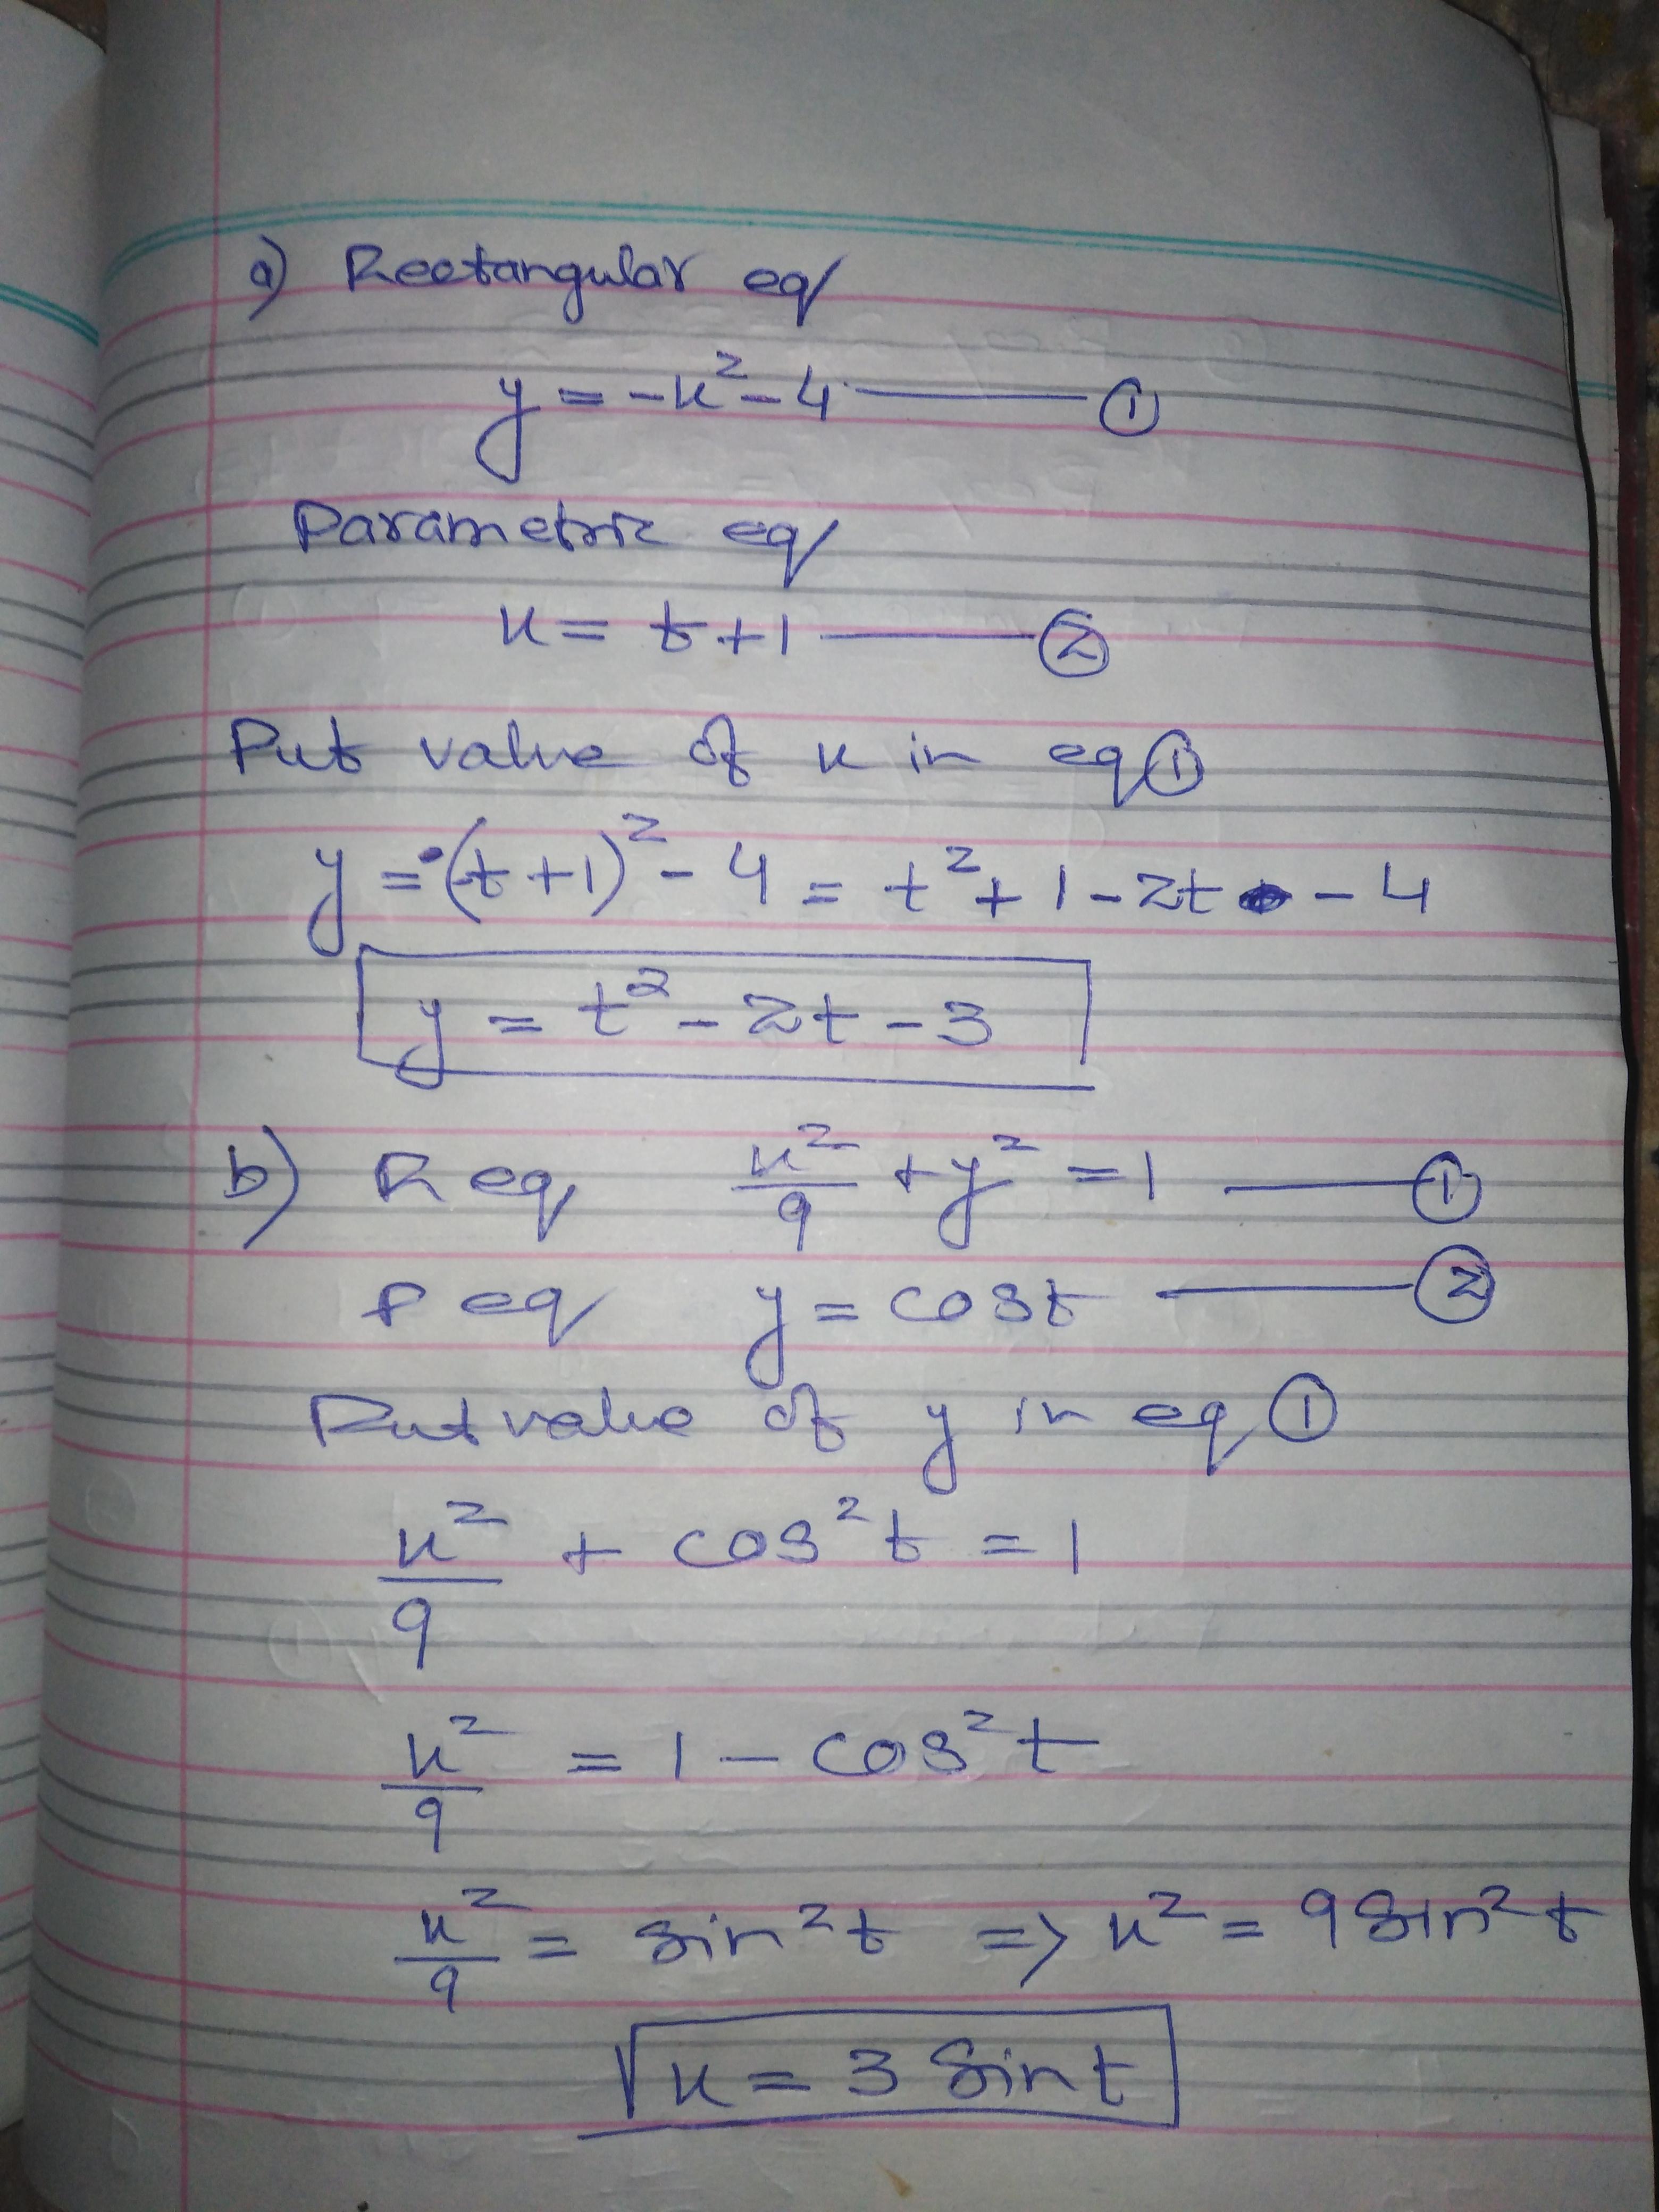 a) Rectangular eq
y = -x² - 4 —— ①
Parametric eq
x = t + 1 —— ②
Put value of x in eq ①
y = (t + 1)² - 4 = t² + 1 - 2t - 4
y = t² - 2t - 3
b) R eq x²/9 + y² = 1 —— ①
P eq y = cost —— ②
Put value of y in eq ①
x²/9 + cos²t = 1
x²/9 = 1 - cos²t
x²/9 = sin²t => x² = 9 sin²t
x = 3 sin t